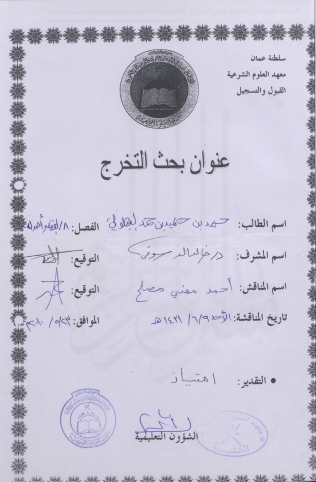 سلطنة عمان
معهد العلوم الشرعية
القبول والتسجيل
عنوان بحث التخرج
اسم الطالب: حمد بن حميد بن حمد الفصل: ٨/
اسم المشرف: د. خالد الدسوقي التوقيع:
اسم المناقش: أحمد مفني مصلح التوقيع:
تاريخ المناقشة: الأحد ١٤٣١/٦/٩هـ الموافق: ٢٠١٠/٥/٢٣م
• التقدير: امتياز
الشؤون التعليمية